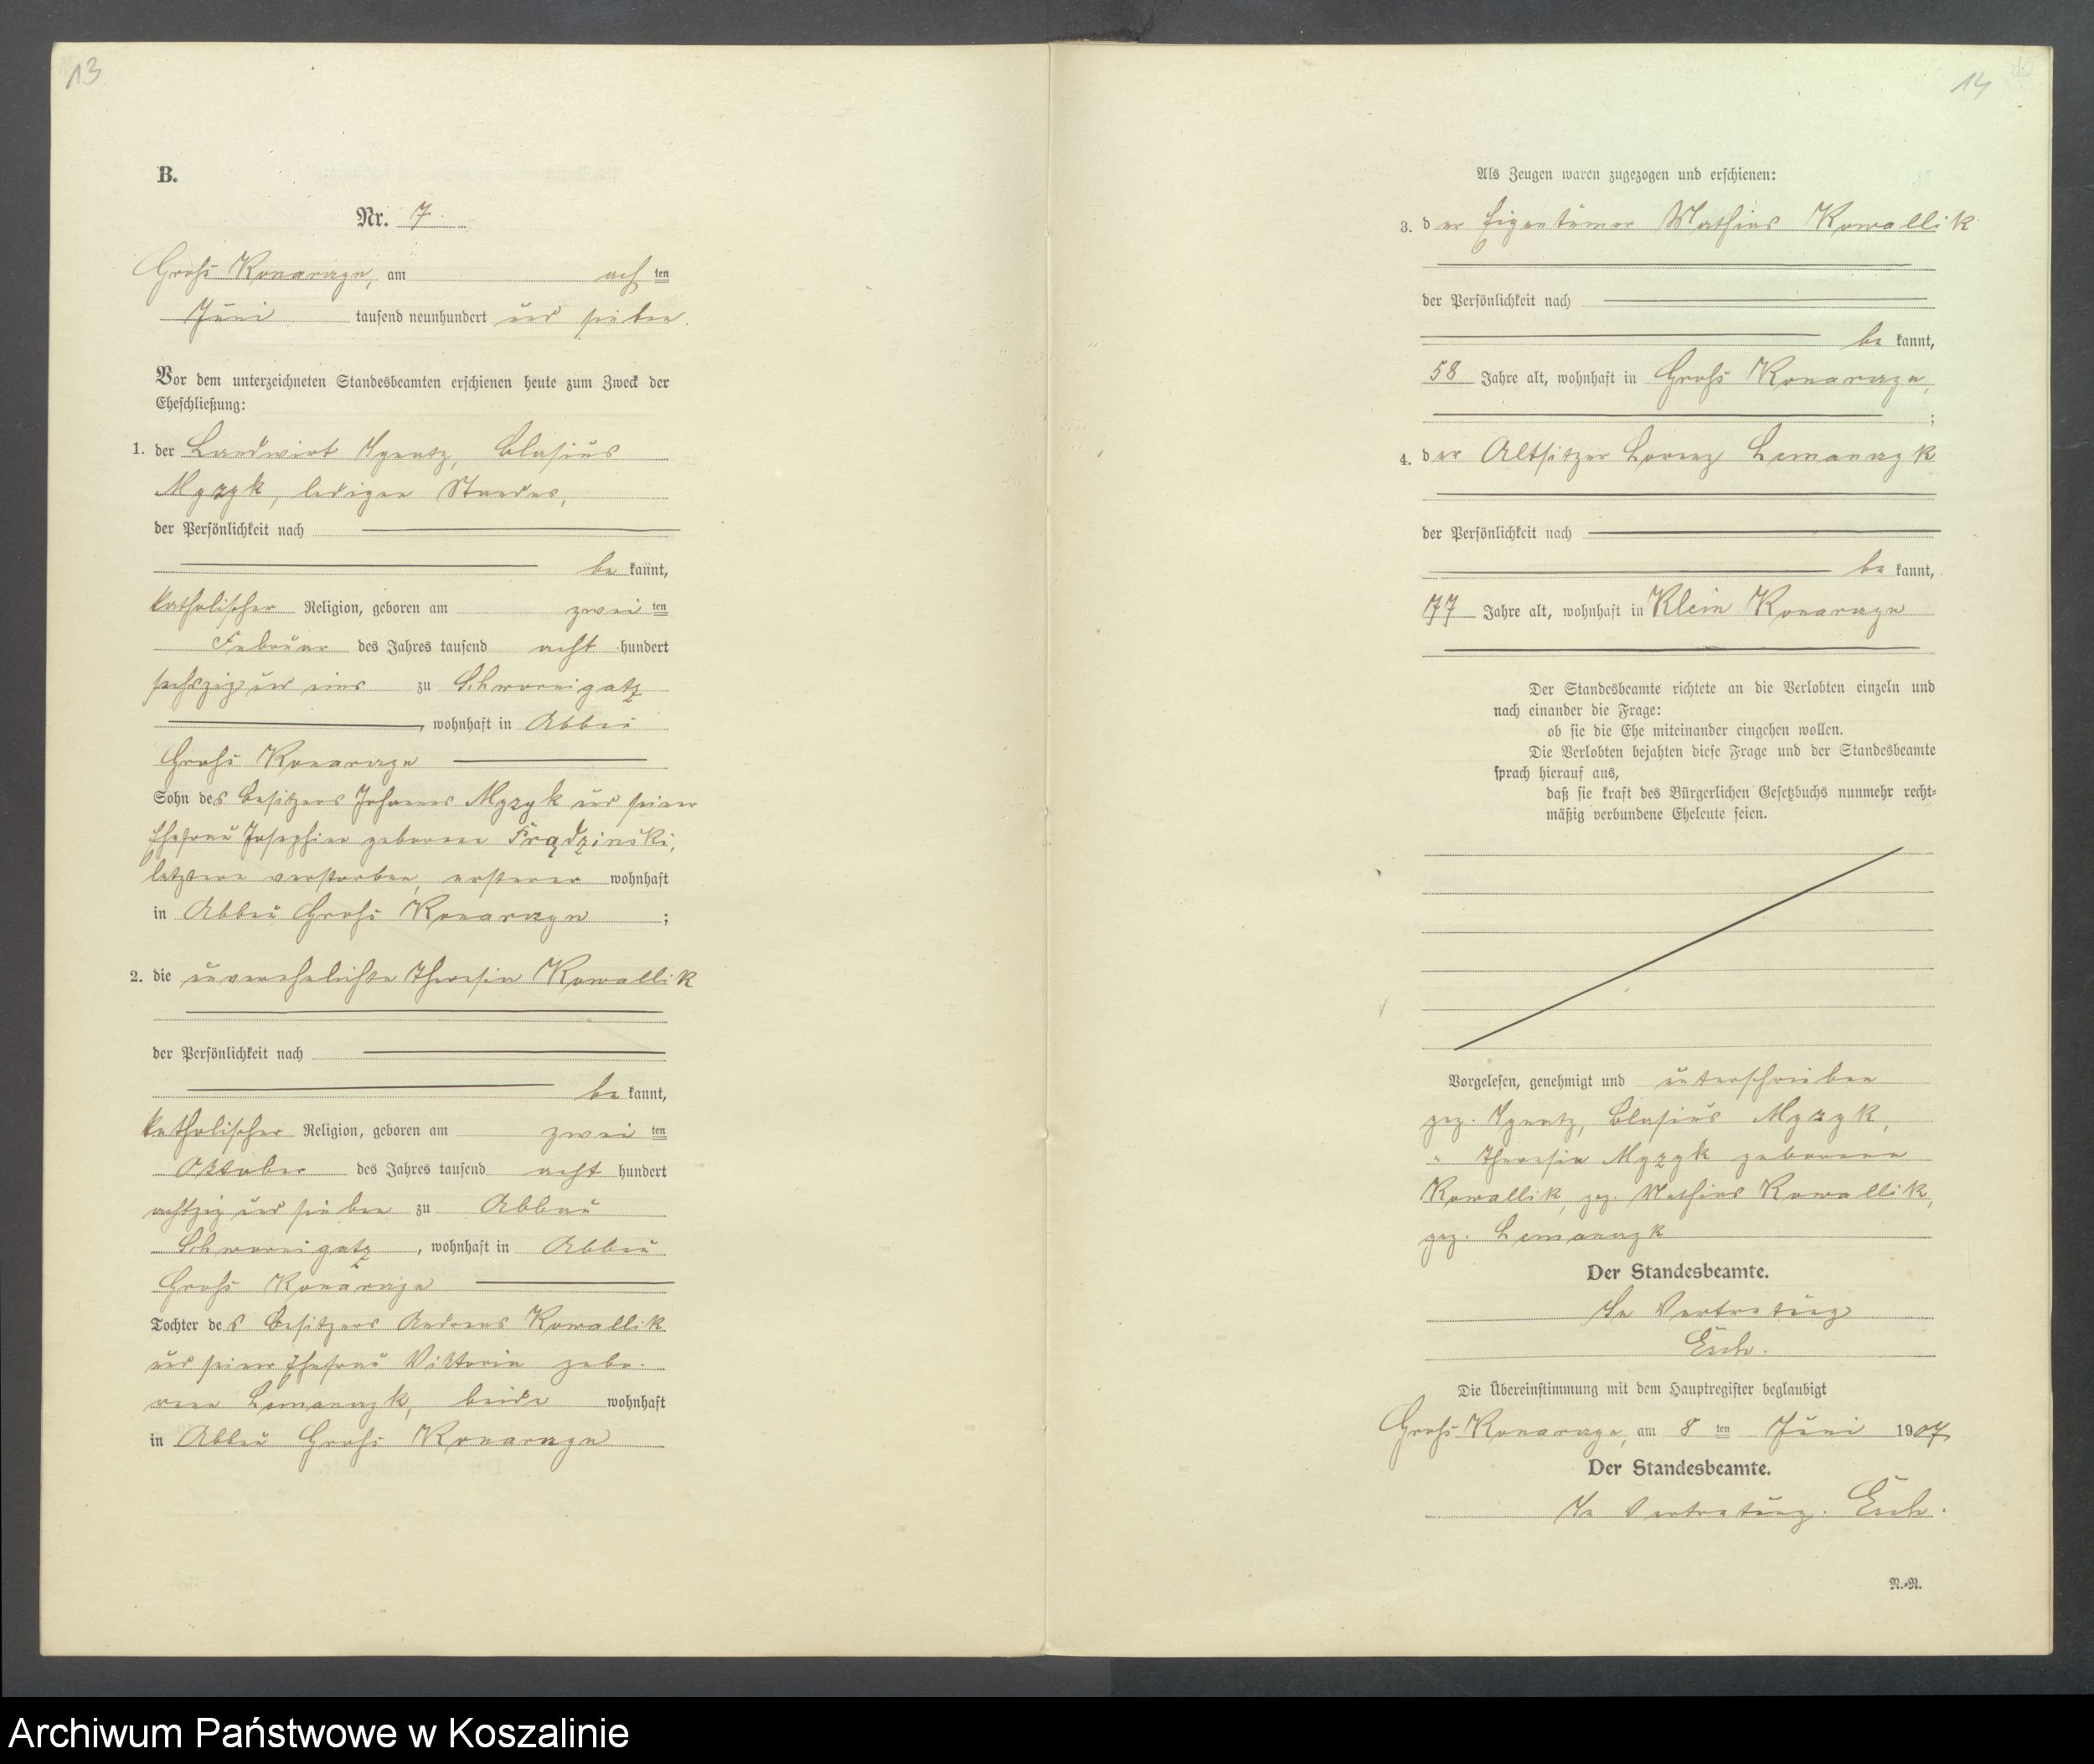 13
B.
Nr. 7.
Groß Konarczyn, am ach ten
Juni tausend neunhundert und sieben.
Vor dem unterzeichneten Standesbeamten erschienen heute zum Zweck der
Eheschließung:
1. der Landwirt Ignatz, Blasius
Myzyk, ledigen Standes,
der Persönlichkeit nach
be kannt,
katholischer Religion, geboren am zwei ten
Februar des Jahres tausend acht hundert
sechszig und eins zu Schwornigatz
, wohnhaft in Abbau
Groß Konarczyn
Sohn des Besitzers Johannes Myzyk und seiner
Ehefrau Josephine geborene Frądzinski,
letztere verstorben, ersterer wohnhaft
in Abbau Groß Konarczyn ;
2. die unverehelichte Theresia Kowallik
der Persönlichkeit nach
be kannt,
katholischer Religion, geboren am zwei ten
Oktober des Jahres tausend acht hundert
achtzig und sieben zu Abbau
Schwornigatz , wohnhaft in Abbau
Groß Konarczyn
Tochter des Besitzers Andreas Kowallik
und seiner Ehefrau Viktoria gebo-
rene Lemanczyk, beide wohnhaft
in Abbau Groß Konarczyn
14
Als Zeugen waren zugezogen und erschienen:
3. der Eigentümer Mathias Kowallik
der Persönlichkeit nach
be kannt,
58 Jahre alt, wohnhaft in Groß Konarczyn,
;
4. der Altsitzer Lorenz Lemanczyk
der Persönlichkeit nach
be kannt,
77 Jahre alt, wohnhaft in Klein Konarczyn
Der Standesbeamte richtete an die Verlobten einzeln und
nach einander die Frage:
ob sie die Ehe miteinander eingehen wollen.
Die Verlobten bejahten diese Frage und der Standesbeamte
sprach hierauf aus,
daß sie kraft des Bürgerlichen Gesetzbuchs nunmehr recht-
mäßig verbundene Eheleute seien.
Vorgelesen, genehmigt und unterschrieben
gez. Ignatz, Blasius Myzyk,
" Theresia Myzyk geborene
Kowallik, gez. Mathias Kowallik,
gez. Lemanczyk
Der Standesbeamte.
In Vertretung
Esch.
Die Übereinstimmung mit dem Hauptregister beglaubigt
Groß Konarczyn, am 8 ten Juni 1907
Der Standesbeamte.
In Vertretung. Esch.
N.-N.
Archiwum Państwowe w Koszalinie